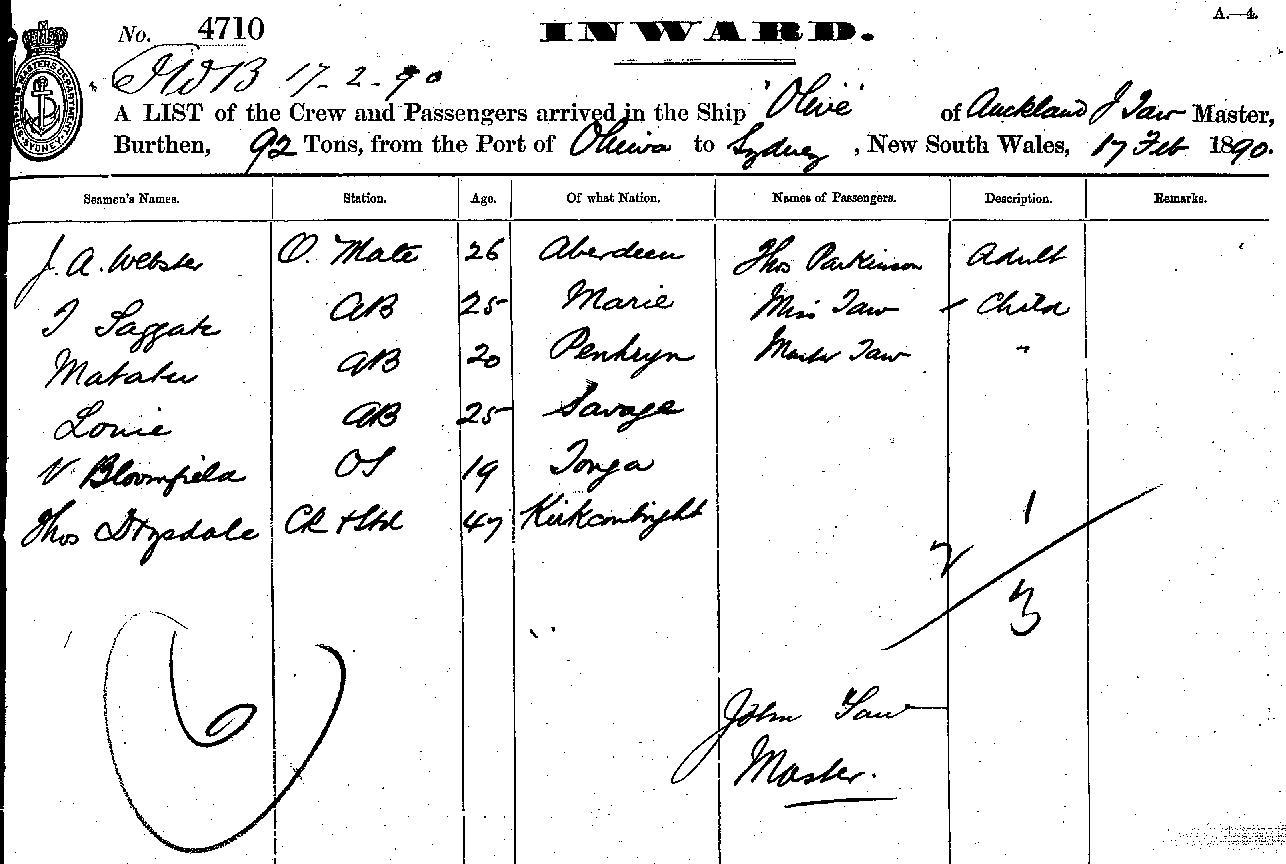 A.—4.
No. 4710
INWARD.
17-2-90
A LIST of the Crew and Passengers arrived in the Ship "Olive" of Auckland J Taw Master,
Burthen, 92 Tons, from the Port of Ohiwa to Sydney, New South Wales, 17 Feb 1890.
Seamen's Names. Station. Age. Of what Nation. Names of Passengers. Description. Remarks.
J. A. Webster O. Mate 26 Aberdeen Thos Parkinson Adult
T AB 25 Marie Miss Taw Child
Matatu AB 20 Penhryn Master Taw "
Louie AB 25 Savage
V Bloomfield OS 19 Tonga
Thos Drysdale Ck & Std 47 Kirkcudbright
1
2
3
6
John Taw
Master.